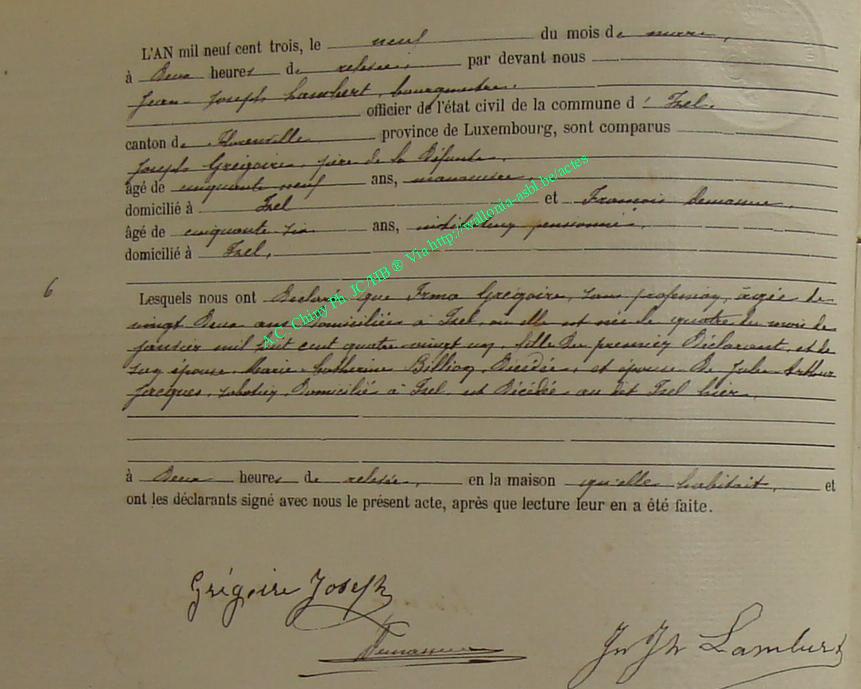 L'AN mil neuf cent trois, le neuf du mois de mars,
à deux heures de relevée, par devant nous
Jean-Joseph Lambert, bourgmestre,
officier de l'état civil de la commune d' Izel,
canton de Florenville province de Luxembourg, sont comparus
Joseph Grégoire, père de la défunte,
âgé de cinquante neuf ans, manoeuvre,
domicilié à Izel et François Demasure,
âgé de cinquante six ans, instituteur pensionné,
domicilié à Izel,
6
Lesquels nous ont déclaré que Irma Grégoire, sans profession, âgée de
vingt deux ans, domiciliée à Izel, où elle est née le quatre du mois de
janvier mil huit cent quatre vingt un, fille du premier déclarant, et de
son épouse, Marie-Catherine Billion, décédée, et épouse de Jules Arthur
Jacques, sabotier, domicilié à Izel, est décédée au dit Izel hier,
à deux heures de relevée, en la maison qu'elle habitait, et
ont les déclarants signé avec nous le présent acte, après que lecture leur en a été faite.
Grégoire Joseph
Jn Jh Lambert
A.C. Chiny Ph. IC/HB ® Via http://wallonia-asbl.be/actes